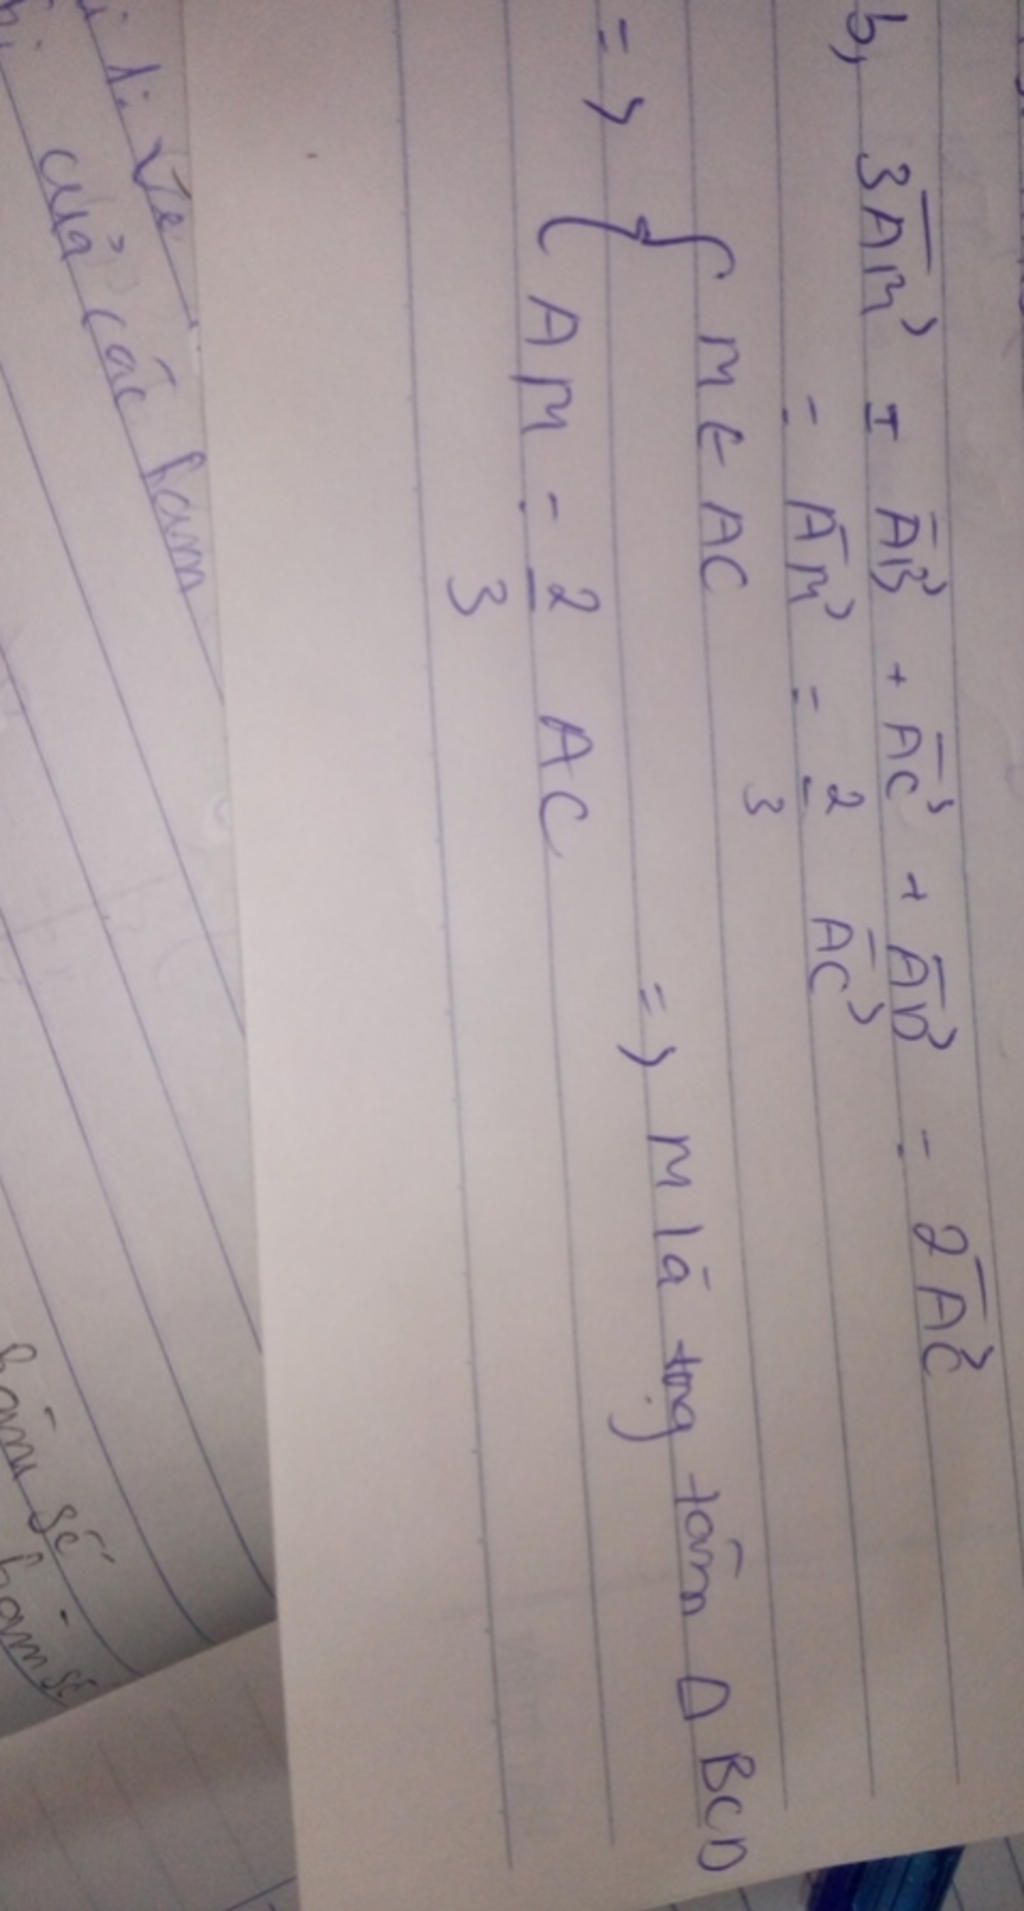 b, 3AM = AB + AC + AD = 2AC
= AM = 2/3 AC
=> { M ∈ AC
AM = 2/3 AC => M là trọng tâm Δ BCD
1. Vẽ
của các hàm
hàm số
hàm số